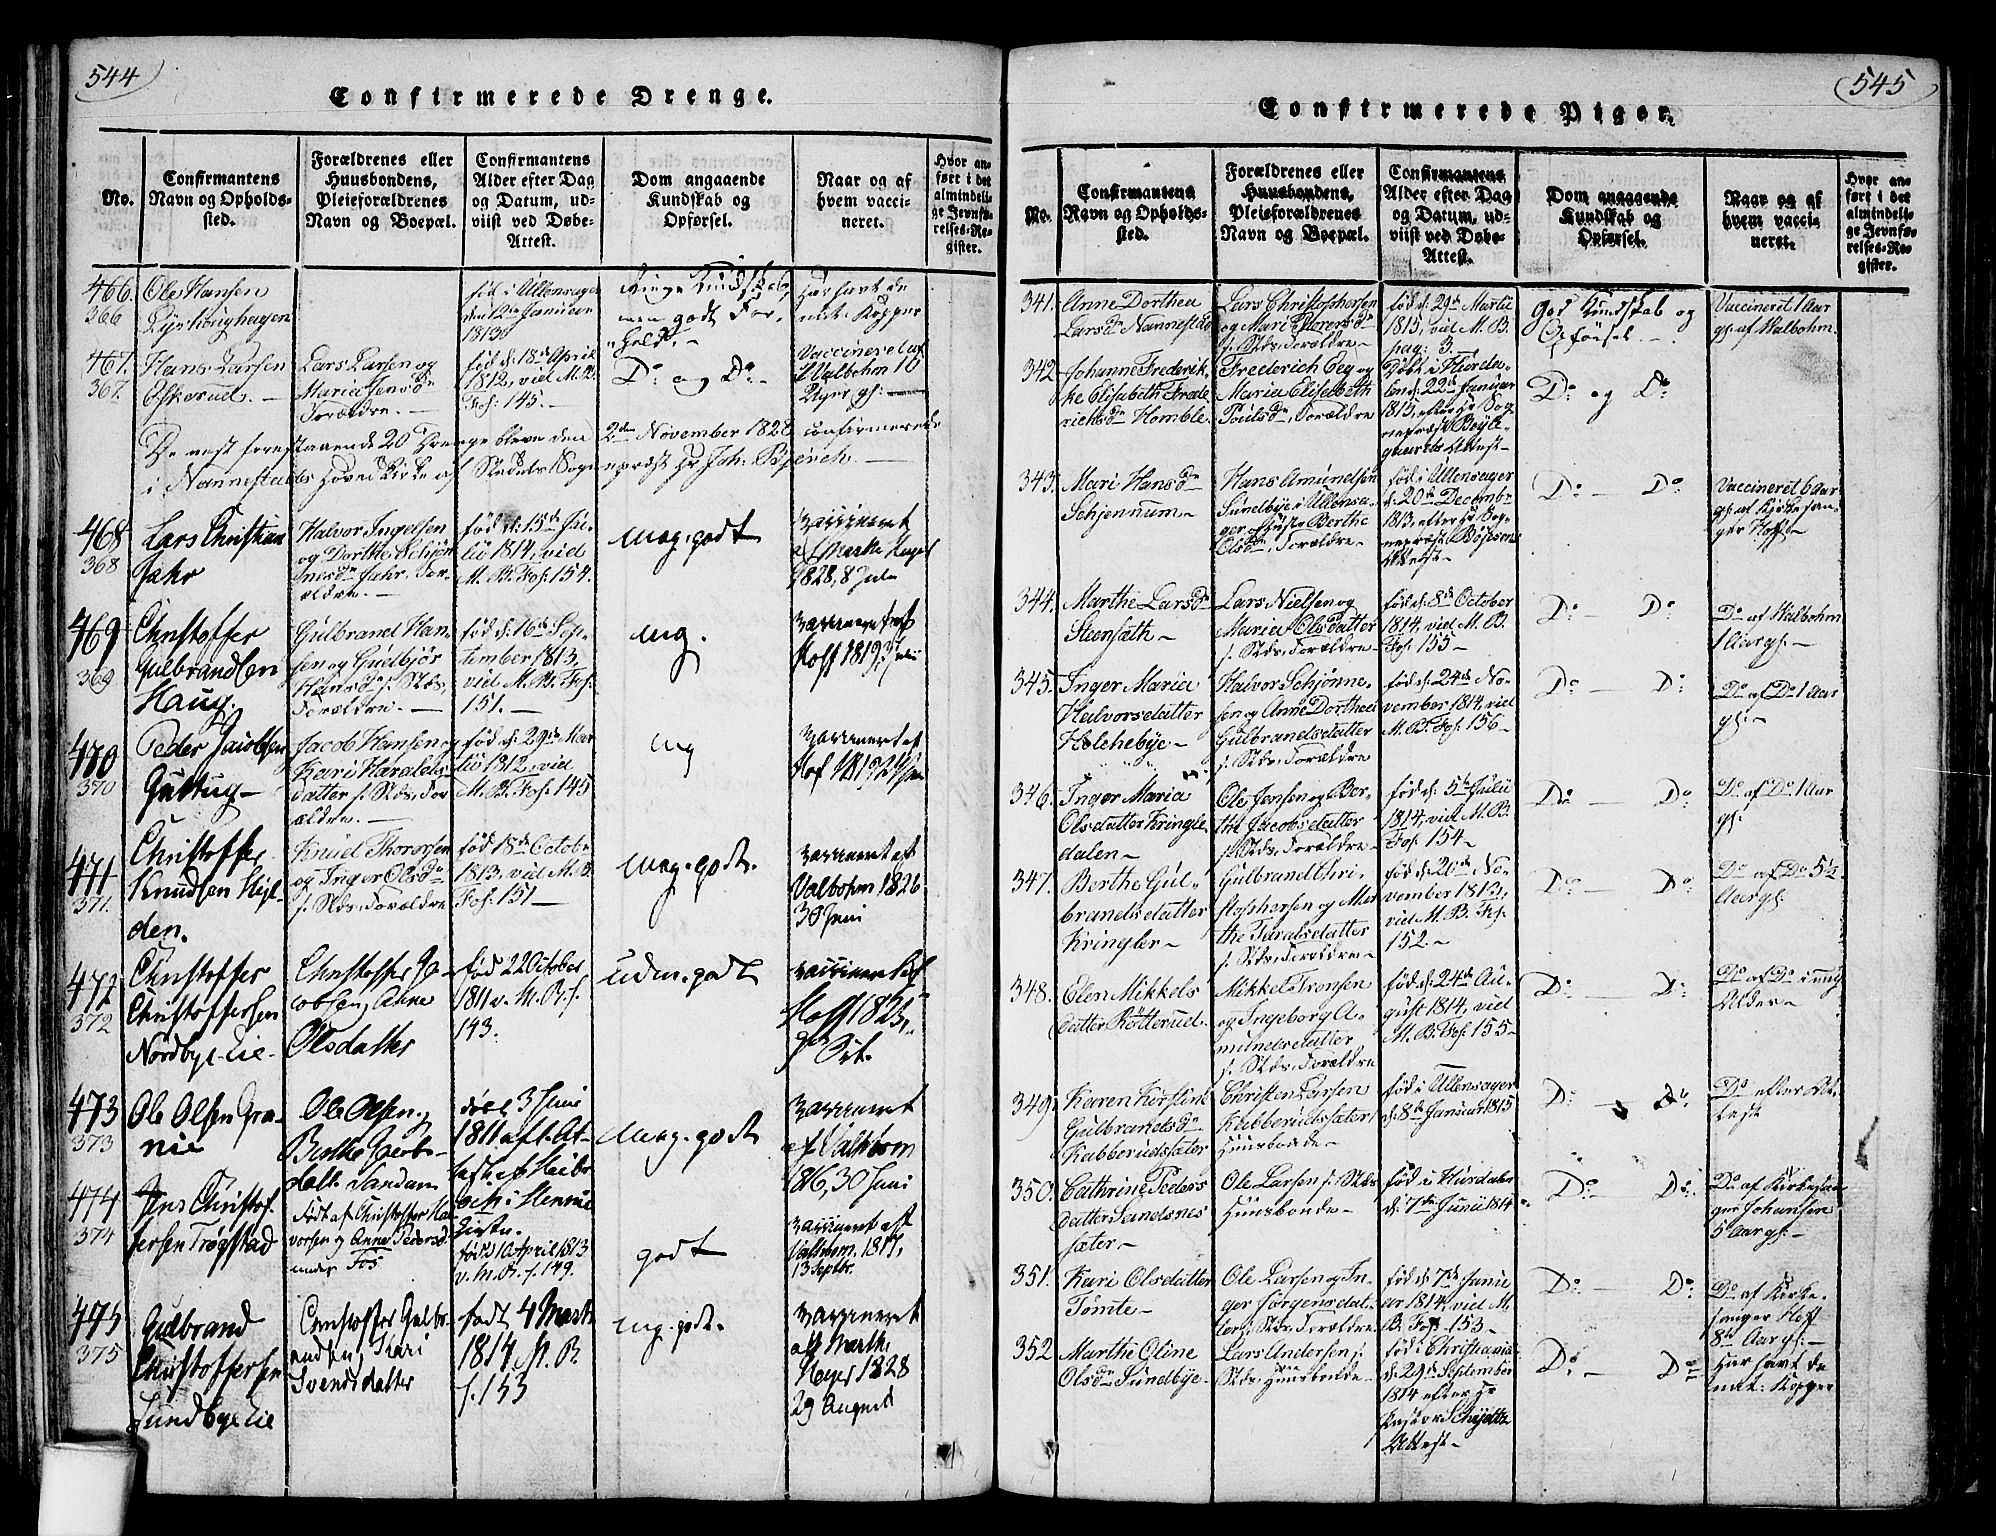 544
Confirmerede Drenge.
No.
Confirmantens
Navn og Opholds-
sted.
Forældrenes eller
Huusbondens,
Pleieforældrenes
Navn og Boepæl.
Confirmantens
Alder efter Dag
og Datum, ud-
viist ved Døbe-
Attest.
Dom angaaende
Kundskab og
Opførsel.
Naar og af
hvem vacci-
neret.
Hvor an-
ført i det
almindeli-
ge Jevnfø-
relses-Re-
gister.
466.
366
Ole Hansen
født i Ullensager
den 12te Januar
1813
Ringe Kundskab,
men godt For-
hold.
Har havt de
nat: Kopper
467.
367.
Hans Larsen
Eskerud. —
Lars Larsen og
Maria Jensdr
Forældre. —
fød d: 18de April
1812, vid M. B.
Fol: 145. —
Do og Do. —
Vaccineret af
Walbohm 10
Uger gl: —
De nest forestaaende 20 Drenge bleve den 2den November 1828 confirmerede
i Nannestads Hoved Kirke af Stedets Sogneprest Hr Joh:
468
368
Lars Christian
Jahr
Halvor Ingelsen
og Dorthe Schjøn-
nesdr Jahr. For-
ældre. —
fød d: 15de Ju-
lii 1814, vid
M. B. Fol: 154.
mag. godt
Vaccineret
af Marthe
1828, 8 Julii
469
369
Christoffer
Gulbrandsen
Haug.
Gulbrand Han-
sen og Gudbjør
Hansdr s. Stds,
Forældre. —
fød d: 16de Sep-
tember 1813,
vid M. B. Fol:
151. —
mg.
Vaccineret af
Hoff 1819,
470
370
Peder Jacobsen
Jacob Hansen og
Kari Haralds-
datter s. Stds, For-
ældre. —
fød d: 29de Mar-
tii 1812, vid
M. B. Fol: 145
mg
Vaccineret af
471
371.
Christoffer
Knudsen
den.
Knud Thoresen
og Inger Olsdr
s. Stds, Forældre
fød 18de Octobr
1813, vid M. B.
Fol: 151 —
mag. godt.
Vaccineret af
Valbohm 1826
30 Juni
472
372
Christoffer
Christoffersen
Nordbye Eie -
Christoffer Ja-
cobsen, Anne
Olsdatter
fød 22 October
1811 v. M. B. f.
143.
udm. godt
Vaccineret af
Hoff 1823,
473
373
Ole Olsen Gra-
nie
Ole Olsen og
Berthe Jacobs-
datt.
død 3 Juni
1811 aft. At-
mag. godt
Vaccineret
af Valbom
1816, 30 Juni
474
374
Jens Christof-
fersen Trøgstad
Født af Christoffer Hal-
vorsen og Anne Pedersd
under Fos
født 10 April 1813
v. M. B. f. 149.
godt
Vaccineret af
Valbom. 1817,
13 Septbr.
475
375
Gulbrand
Christoffersen
Sundbye Eie
Christoffer Gulbr-
andsen, Kari
Svendsdatter
født 4 Marts
1814 M. B.
f. 153
mg. godt.
Vaccineret
af Marthe
Meyer 1828
29 August
545
Confirmerede Piger.
No.
Confirmantens
Navn og Opholds-
sted.
Forældrenes eller
Huusbondens,
Pleieforældrenes
Navn og Boepæl.
Confirmantens
Alder efter Dag
og Datum, ud-
viist ved Døbe-
Attest.
Dom angaaende
Kundskab og
Opførsel.
Naar og af
hvem vacci-
neret.
Hvor an-
ført i det
almindeli-
ge Jevnfø-
relses-Re-
gister.
341.
Anne Dorthea
Larsdr Nannestad
Lars Christophersen
og Mari Thoresdr
s. Stds, Forældre —
fød d: 29de Martii
1813, vid M. B.
pag: 3. —
God Kundskab og
Opførsel. —
Vaccineret 1 Aar
gl: af Walbohm.
342
Johanne Frederik-
ke Elisabeth Frede-
richsdr Homble.
Frederich Eeg og
Maria Elisabeth
Poulsdr, Forældre
Døbt i Hurda-
len d: 22de Januar
1813, efter Hr Sog-
neprest
Attest —
Do og Do
343.
Mari Hansdr
Schjennum —
Hans Amundsen
Sundbye i Ullensa-
ger og Berthe
Olsdr, Forældre —
fød i Ullensager
d: 20de Decembr
1813, efter Hr Sog-
neprest
Attest —
Do — Do
Vaccineret 6 Aar
gl: af Kirkesan-
ger Hoff —
344.
Marthe Larsdr
Steensæth —
Lars Nielsen og
Maria Olsdatter
s. Stds, Forældre —
fød d: 8de October
1814, vid M. B.
Fol: 155 —
Do — Do
Do af Walbohm
1 Aar gl: —
345.
Inger Maria
Halvorsdatter
Holchebye —
Halvor Schjønne-
sen og Anne Dorthea
Gulbrandsdatter
s. Stds, Forældre
fød d: 24de No-
vember 1814, vid
M. B. Fol: 156 —
Do — Do
Do af Do 1 Aar
gl: —
346.
Inger Maria
Olsdatter Kringle-
dalen —
Ole Jensen og Ber-
the Jacobsdatter
s. Stds, Forældre —
fød d: 5te Julii
1814, vid M. B.
Fol: 154 —
Do — Do
Do af Do 1 Aar
gl:
347.
Berthe Gul-
brandsdatter
Kringler —
Gulbrand Chri-
stophersen og Mar-
the Taralsdatter
s. Stds, Forældre —
fød d: 20de No-
vember 1813,
vid M. B. Fol:
152. —
Do — Do
Do af Do 5½
Aar gl:
348.
Elen Mikkels-
datter Røtterud.
Mikkel Tronsen
og Ingeborg A-
mundsdatter
s. Stds, Forældre
fød d: 24de Au-
gust 1814, vid
M. B. Fol: 155 —
Do — Do
Do af Do i ung
Alder —
349.
Karen Kirstine
Gulbrandsdr
Kabberudsæter
Christen Larsen
Kabberudsæter,
Huusbonde —
fød i Ullensager
d: 8de Januar 1815
Do — Do
Do efter At-
test
350.
Cathrine Peders-
datter Sandsnes-
sæter —
Ole Larsen s. Stds
Huusbonde —
fød i Hurdalen
d: 7de Junii 1814
Do — Do
Do af Kirkesan-
ger Johansen
5 Aar gl: —
351.
Kari Olsdatter
Tømte —
Ole Larsen og In-
ger Jørgensdat-
ter s. Stds, Forældre
fød d: 7de Janu-
ar 1814, vid M.
B. Fol: 153 —
Do — Do
Do af Kirke-
sanger Hoff
8te Aar gl: —
352
Marthe Oline
Olsdr Sundbye —
Lars Andersen s.
Stds, Huusbonde —
fød i Christiania
d: 29de September
1814 efter Hr
Pastor
Attest —
Do — Do
Har havt de
nat: Kopper